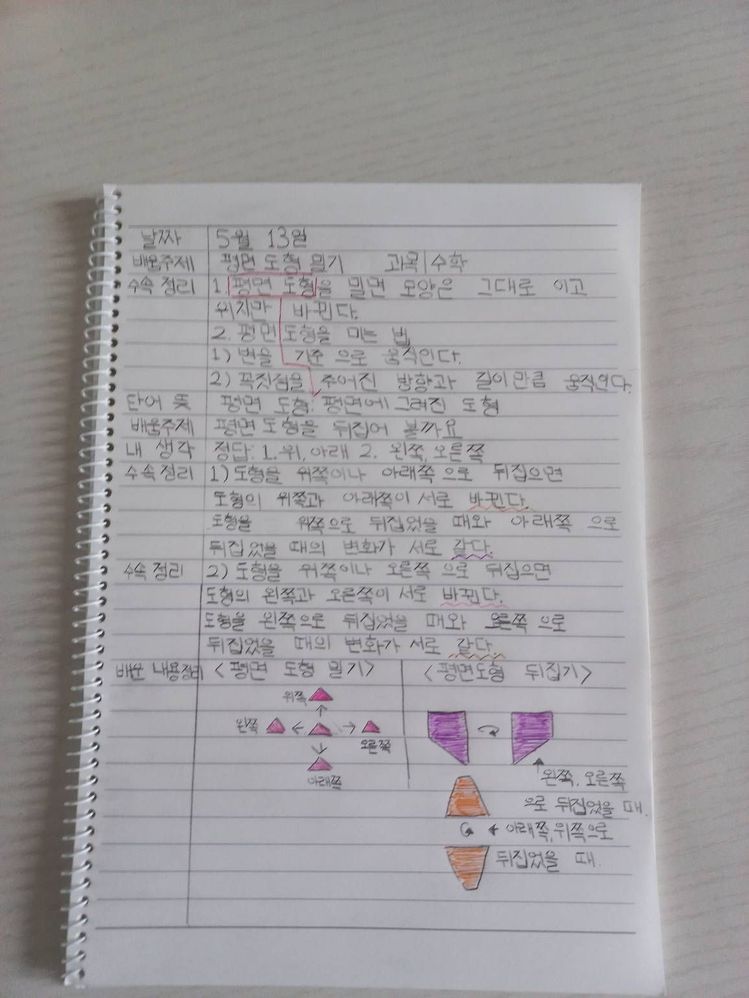 날짜 5월 13일
배움주제 평면 도형 밀기 과목 수학
수속 정리 1. 평면 도형을 밀면 모양은 그대로 이고
위치만 바뀐다.
2. 평면 도형을 미는 법
1) 변을 기준 으로 움직인다.
2) 꼭짓점을 주어진 방향과 길이만큼 움직인다.
단어 뜻 평면 도형: 평면에 그려진 도형
배움주제 평면 도형을 뒤집어 볼까요
내 생각 정답: 1. 위, 아래 2. 왼쪽, 오른쪽
수속 정리 1) 도형을 위쪽이나 아래쪽 으로 뒤집으면
도형의 위쪽과 아래쪽이 서로 바뀐다.
도형을 위쪽으로 뒤집었을 때와 아래쪽 으로
뒤집었을 때의 변화가 서로 같다.
수속 정리 2) 도형을 위쪽이나 오른쪽 으로 뒤집으면
도형의 왼쪽과 오른쪽이 서로 바뀐다.
도형을 왼쪽으로 뒤집었을 때와 오른쪽 으로
뒤집었을 때의 변화가 서로 같다.
배운 내용정리 <평면 도형 밀기> <평면도형 뒤집기>
위쪽
왼쪽
오른쪽
아래쪽
왼쪽, 오른쪽
으로 뒤집었을 때.
아래쪽, 위쪽으로
뒤집었을 때.